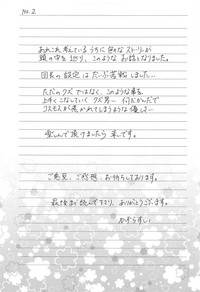 No.2
あれこれ考えているうちに色々なストーリーが
頭の中を巡り、このようなお話となりました。
団長の設定はだいぶ苦戦しました…
ただのクズではなく、このような事を
上手くこなしていくクズ男… 何だかんだで
リスモスが惹かれてしまうような優しさ…
楽しんで頂けましたら幸です。
ご意見、ご感想、お待ちしております。
最後まで読んで下さり、ありがとうございます。